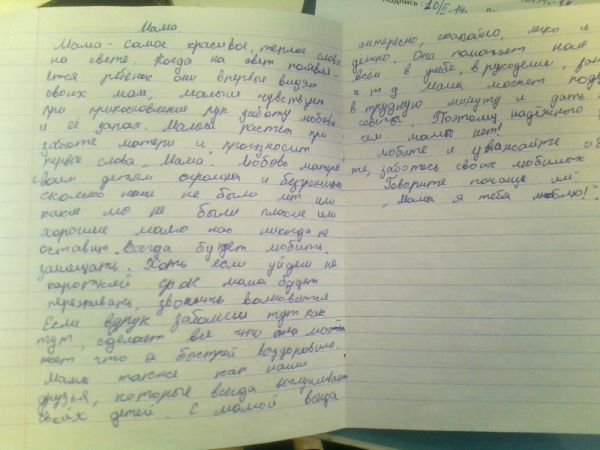 Мама.
Мама - самое красивое, теплое слово
на свете. Когда на свет появля-
ется ребенок они впервые видят
своих мам, малыш чувствует
при прикосновение рук заботу любовь
и её запах. Малыш растет при
заботе матери и произносит
первые слова „Мама. Любовь матери
к своим детям огромна и безгранична
сколько нам не было лет или
какие мы не были плохие или
хорошие мама нас никогда не
оставит. Всегда будет любить,
защищать. Хоть если уйдем на
короткий срок мама будет
переживать, звонить волноватся
Если вдруг заболеши тут как
тут, сделает все что она мо-
жет что б быстрей выздоровили.
Мама также как наши
друзья, которые всегда выслушивает
своих детей. С мамой всегда
подпись 20/II-14.
интересно, спокойно, легко и
Она помогает нам
всем в учебе, в рукоделии,
и т д Мама может
в трудную минуту и дать
советы Поэтому, надёжного
чем мамы нет!
любите и уважайте
те, заботось своих любимых
Говорите почаще им
„Мама я тебя люблю!"